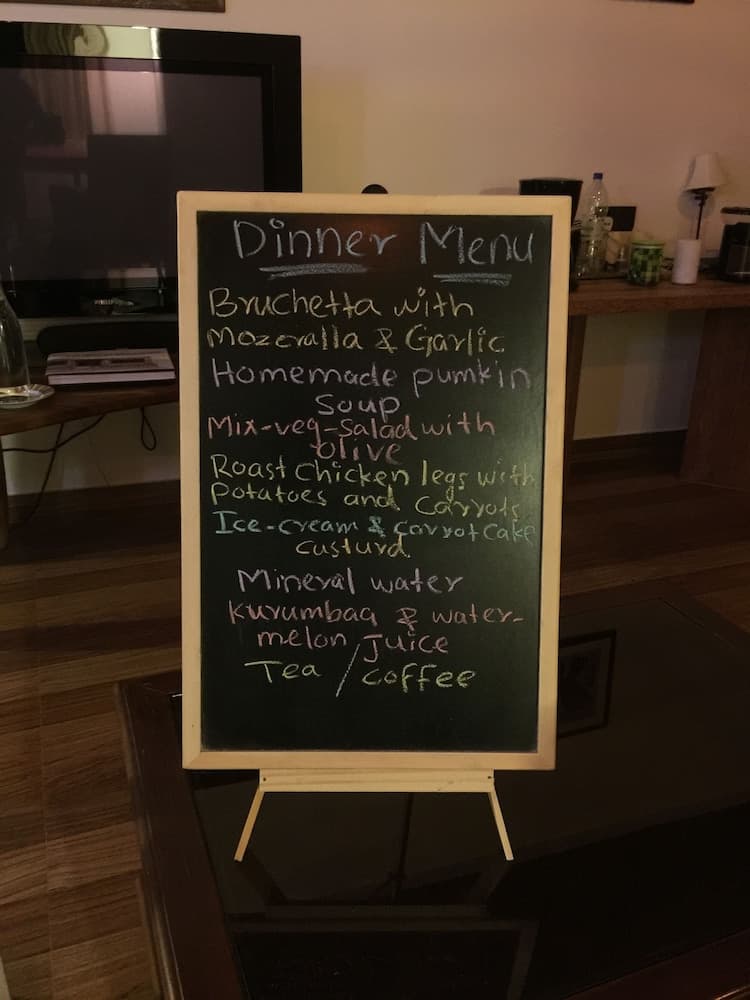 Dinner Menu
Bruchetta with
Mozeralla & Garlic
Homemade pumkin
Soup
Mix-veg-salad with
olive
Roast chicken legs with
potatoes and carrots
Ice-cream & carrot cake
custurd
Mineral water
kurumbaa & water-
melon juice
Tea / coffee